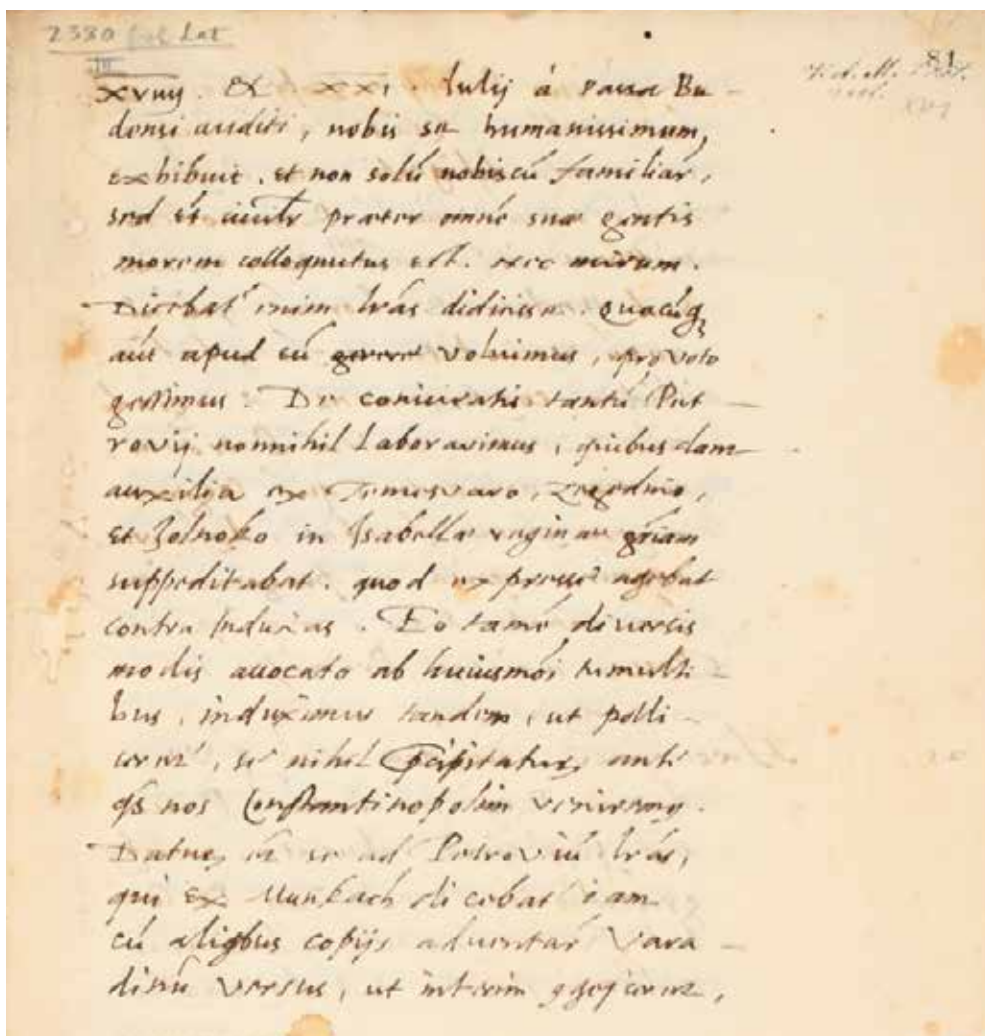 2380 fol. Lat
III
84
XVIIII. et XXI. Iulij á Passa Bu-
densi auditi, nobis se humanissimum,
exhibuit. et non solú nobiscú familiar,
sed et preter omné suae gentis
morem colloquutus est. nec mirum.
Dicebat enim lrás didicisse. Quaecúq
aút apud eú gerere voluimus, pro voto
gessimus. De coniuratis tantú Pet-
rovij nonnihil laboravimus, quibusdam
auxilia ex Temesvaro,
et Zolnoko in Isabellae reginae grám
suppeditabat. quod expressé agebat
contra Inducias. Eo tamé diversis
modis avocato ab huiusmói tumulti-
bus, induximus tandem, ut polli-
ceret, se nihil pcipitatur ante
qs nos Constantinopolim venirems.
Datue sé ad Petroviú lrás,
qui ex Munkach dicebat iam
cú aliqbus copijs adventár Vara-
dinú versus, ut interim